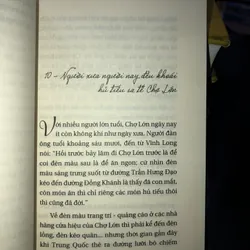 10 - Người xưa người nay đều khoái
hủ tiếu sa tế Chợ Lớn
Với nhiều người lớn tuổi, Chợ Lớn ngày nay
ít còn không khí như ngày xưa. Người đàn
ông tuổi khoảng sáu mươi, đến từ Vĩnh Long
nói: “Hồi trước bảy lăm đi Chợ Lớn trước là để
coi đèn màu sau là để ăn ngon; cứ nhìn đèn
màu sáng trưng suốt từ đường Trần Hưng Đạo
kéo đến đường Đồng Khánh là thấy đã con mắt,
còn món ăn thì chỉ riêng các món hủ tiếu thôi
thì cũng đã đời”.
Về đèn màu trang trí - quảng cáo ở các nhà
hàng của khu Chợ Lớn thì phải kể đến đèn
lồng, đèn kéo quân... nhưng thời gian gần đây
khi Trung Quốc thè ra đường lưỡi bò chiếm